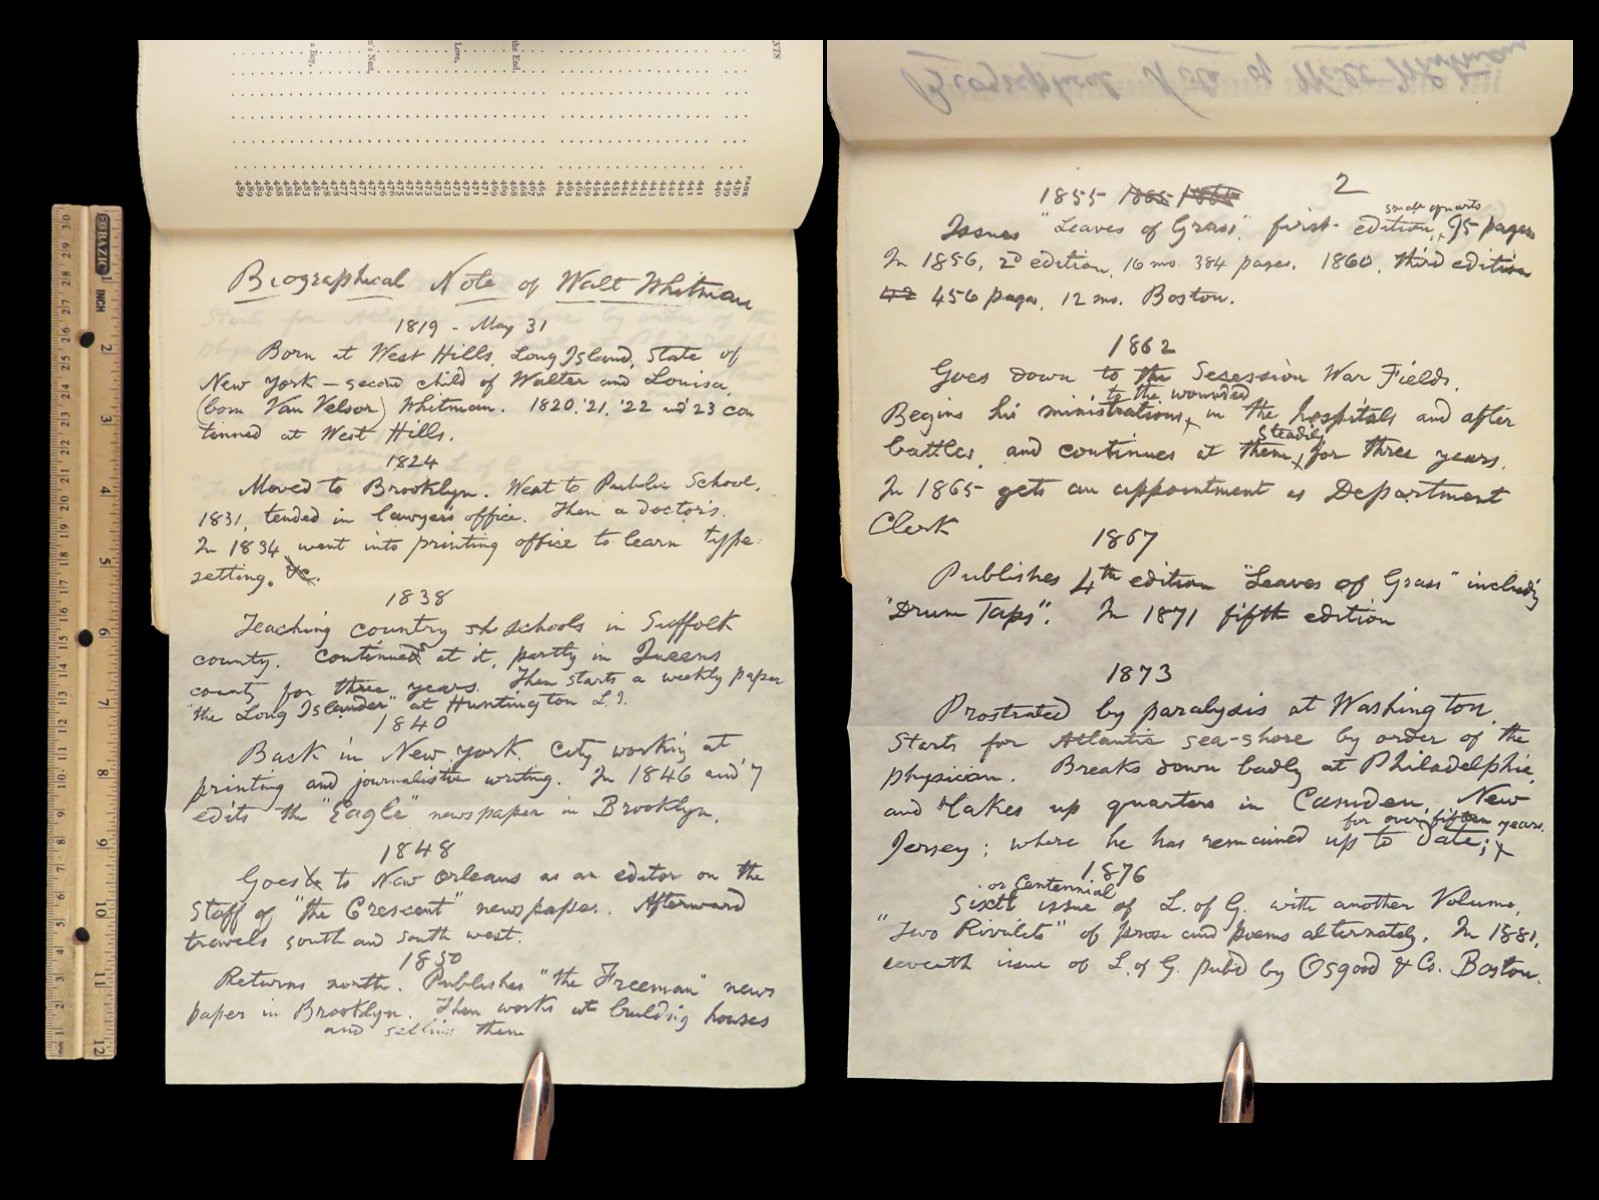 Biographical Note of Walt Whitman
1819 - May 31
Born at West Hills, Long Island, State of
New York – second child of Walter and Louisa,
(born Van Velsor) Whitman. 1820, '21, '22 and '23 con
tinued at West Hills.
1824
Moved to Brooklyn. Went to Public School,
1831, tended in lawyer's office. Then a doctor's.
In 1834 went into printing office to learn type
setting. &c.
1838
Teaching country sh schools in Suffolk
county. Continued at it, partly in Queens
county for three years. Then starts a weekly paper
"the Long Islander" at Huntington L.I.
1840
Back in New York City working at
printing and journalistic writing. In 1846 and '7
edits the "Eagle" newspaper in Brooklyn.
1848
Goes to New Orleans as an editor on the
staff of "the Crescent" newspaper. Afterward
travels south and south west.
1850
Returns north. Publishes "the Freeman" news
paper in Brooklyn. Then works at building houses
and selling them
2
1855
small quarto
Issues "Leaves of Grass," first edition, 95 pages
In 1856, 2d edition, 16 mo. 384 pages. 1860, third edition
456 pages, 12 mo. Boston.
1862
Goes down to the Secession War Fields.
to the wounded
Begins his ministrations, in the hospitals and after
steadily
battles, and continues at them, for three years.
In 1865 gets an appointment as Department
Clerk
1867
Publishes 4th edition "Leaves of Grass" including
"Drum Taps". In 1871 fifth edition
1873
Prostrated by paralysis at Washington.
Starts for Atlantic sea-shore by order of the
physician. Breaks down badly at Philadelphia,
and takes up quarters in Camden, New
for over fifteen years.
Jersey; where he has remained up to date;
1876
or Centennial
Sixth issue of L. of G. with another Volume,
"Two Rivulets" of prose and poems alternately. In 1881,
seventh issue of L. of G. pub'd by Osgood & Co. Boston.